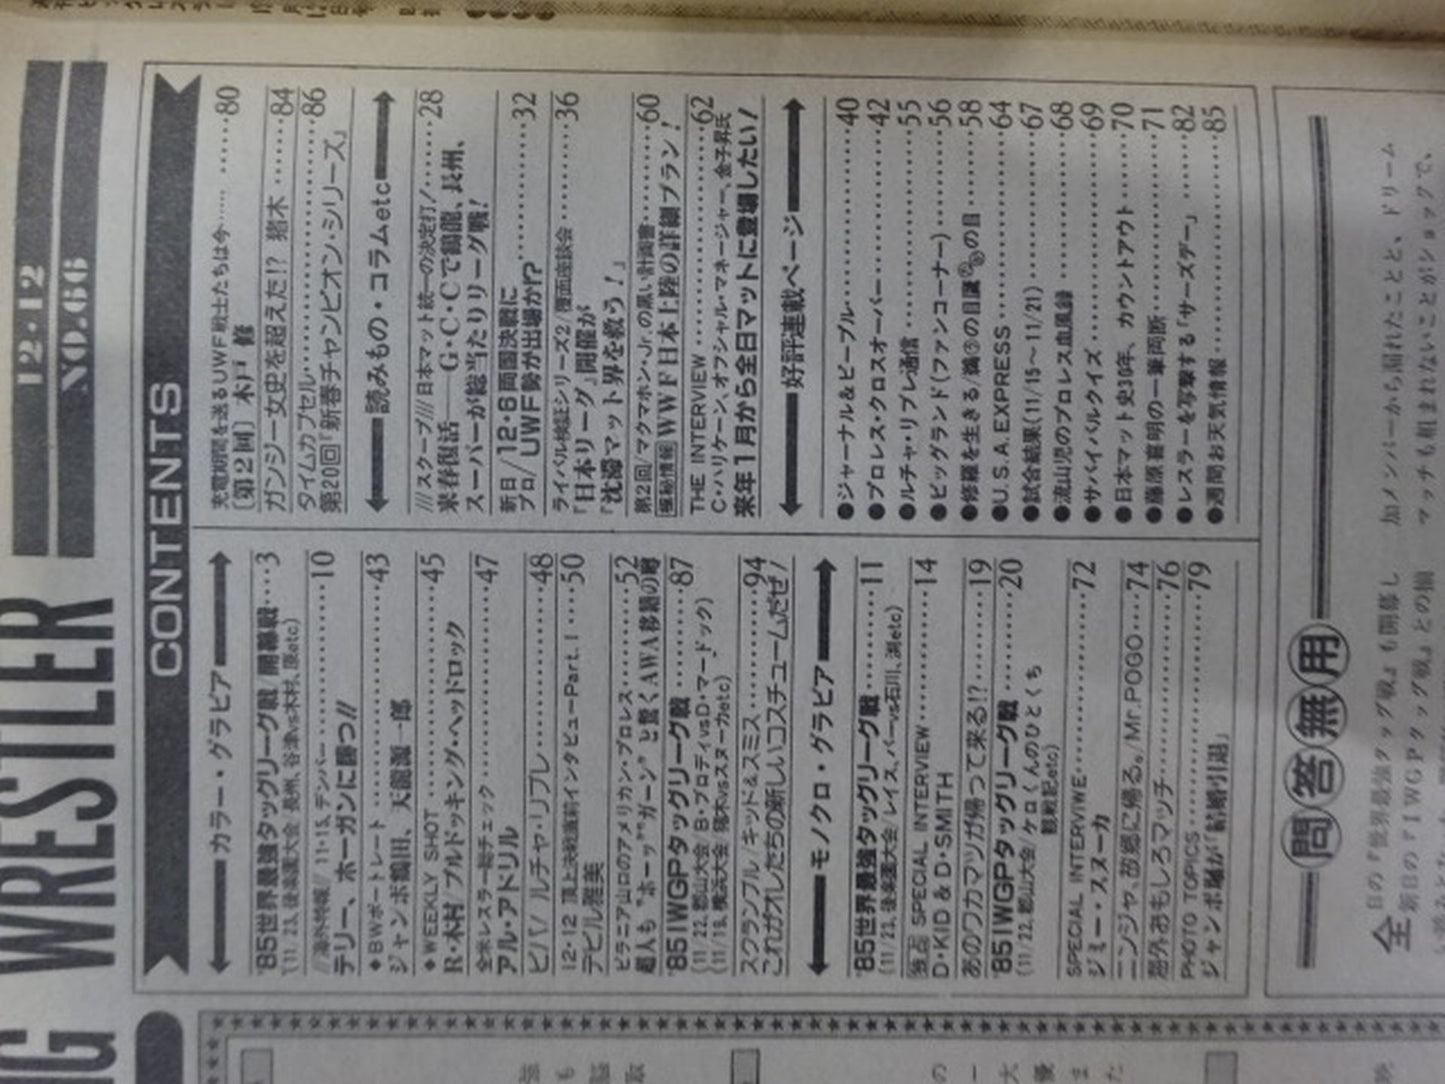 WRESTLER
12・12
NO.66
CONTENTS
カラー・グラビア
'85世界最強タッグリーグ戦 開幕戦…3
(11/23、後楽園大会 長州、谷津vs木村、原etc)
//海外特報// 11・15、デンバー……10
テリー、ホーガンに勝つ!!
◆BWポートレート……43
ジャンボ鶴田、天龍源一郎
◆WEEKLY SHOT……45
R・木村 ブルドッキング・ヘッドロック
全米レスラー総チェック……47
アル・アドリル
ビバ! ルチャ・リブレ……48
12・12 頂上決戦直前インタビューPart.1…50
デビル雅美
ピラニア山口のアメリカン・プロレス……52
超人も“ホーッ”“ガーン”と驚くAWA移籍の噂
'85IWGPタッグリーグ戦……87
(11/22、郡山大会 B・ブロディvsD・マードック)
(11/19、横浜大会 猪木vsスヌーカetc)
スクランブル/キッド&スミス……94
これがオレたちの新しいコスチュームだぜ!
モノクロ・グラビア
'85世界最強タッグリーグ戦……11
(11/23、後楽園大会/レイス、バーvs石川、渕etc)
独占 SPECIAL INTERVIEW……14
D・KID & D・SMITH
あのワカマツが帰って来る!?……19
'85IWGPタッグリーグ戦……20
(11/22、郡山大会/ケロくんのひとくち
観戦記etc)
SPECIAL INTERVIWE……72
ジミー・スヌーカ
ニンジャ、故郷に帰る。/Mr.POGO…74
海外おもしろマッチ……76
PHOTO TOPICS……79
ジャンボ堀が「結婚引退」
充電期間を送るUWF戦士たちは今……80
〔第2回〕木戸 修
ガンジー女史を超えた!? 猪木……84
タイムカプセル……86
第20回『新春チャンピオン・シリーズ』
読みもの・コラムetc
///スクープ/// 日本マット統一の決定打!……28
来春復活——G・C・Cで鶴龍、長州、
スーパーが総当たりリーグ戦!
新日/12・6両国決戦に
プロ/UWF勢が出場か!?……32
ライバル検証シリーズ2/覆面座談会……36
『日本リーグ』開催が
『沈滞マット界を救う!』
第2回/マクマホン・Jr.の黒い計画書……60
極秘情報 WWF日本上陸の詳細プラン!
THE INTERVIEW……62
C・ハリケーン、オフィシャル・マネージャー、金子昇氏
来年1月から全日マットに登場したい!
好評連載ページ
●ジャーナル&ピープル……40
●プロレス・クロスオーバー……42
●ルチャ・リブレ通信……55
●ビッグランド(ファンコーナー)……56
●修羅を生きる/鵜の目鷹の目……58
●U.S.A.EXPRESS……64
●試合結果(11/15〜11/21)……67
●流山児のプロレス血風録……68
●サバイバルクイズ……69
●日本マット史30年、カウントアウト……70
●藤原喜明の一筆両断……71
●レスラーを写撃する「サーズデー」……82
●週間お天気情報……85
問答無用
全日の『世界最強タッグ戦』も開幕し
新日の『IWGPタッグ戦』との摘
加メンバーから漏れたことと、ドリーム
マッチも組まれないことがショックで、